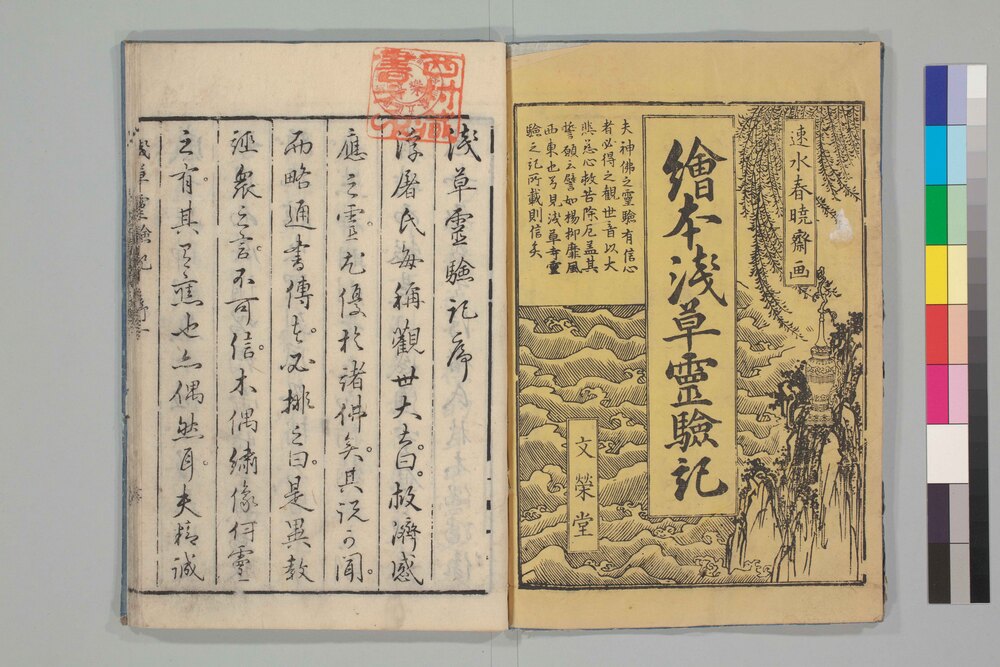 速水春暁齋画
繪本浅草靈驗記
夫神佛之靈驗有信心
者必得之觀世音以大
慈心救苦除厄盖其
誓願云譬如楊柳靡風
西東也今見浅草寺靈
驗之記所載則信矣
文榮堂
浅草靈驗記序
浮屠氏毎稱觀世大士曰救濟感
應之靈尤優於諸佛矣其説可聞
而略通書傳者必排之曰是異教
誣衆之言不可信木偶繍像何靈
之有其言雖也亦偶然耳夫精誠
浅草靈驗記 序